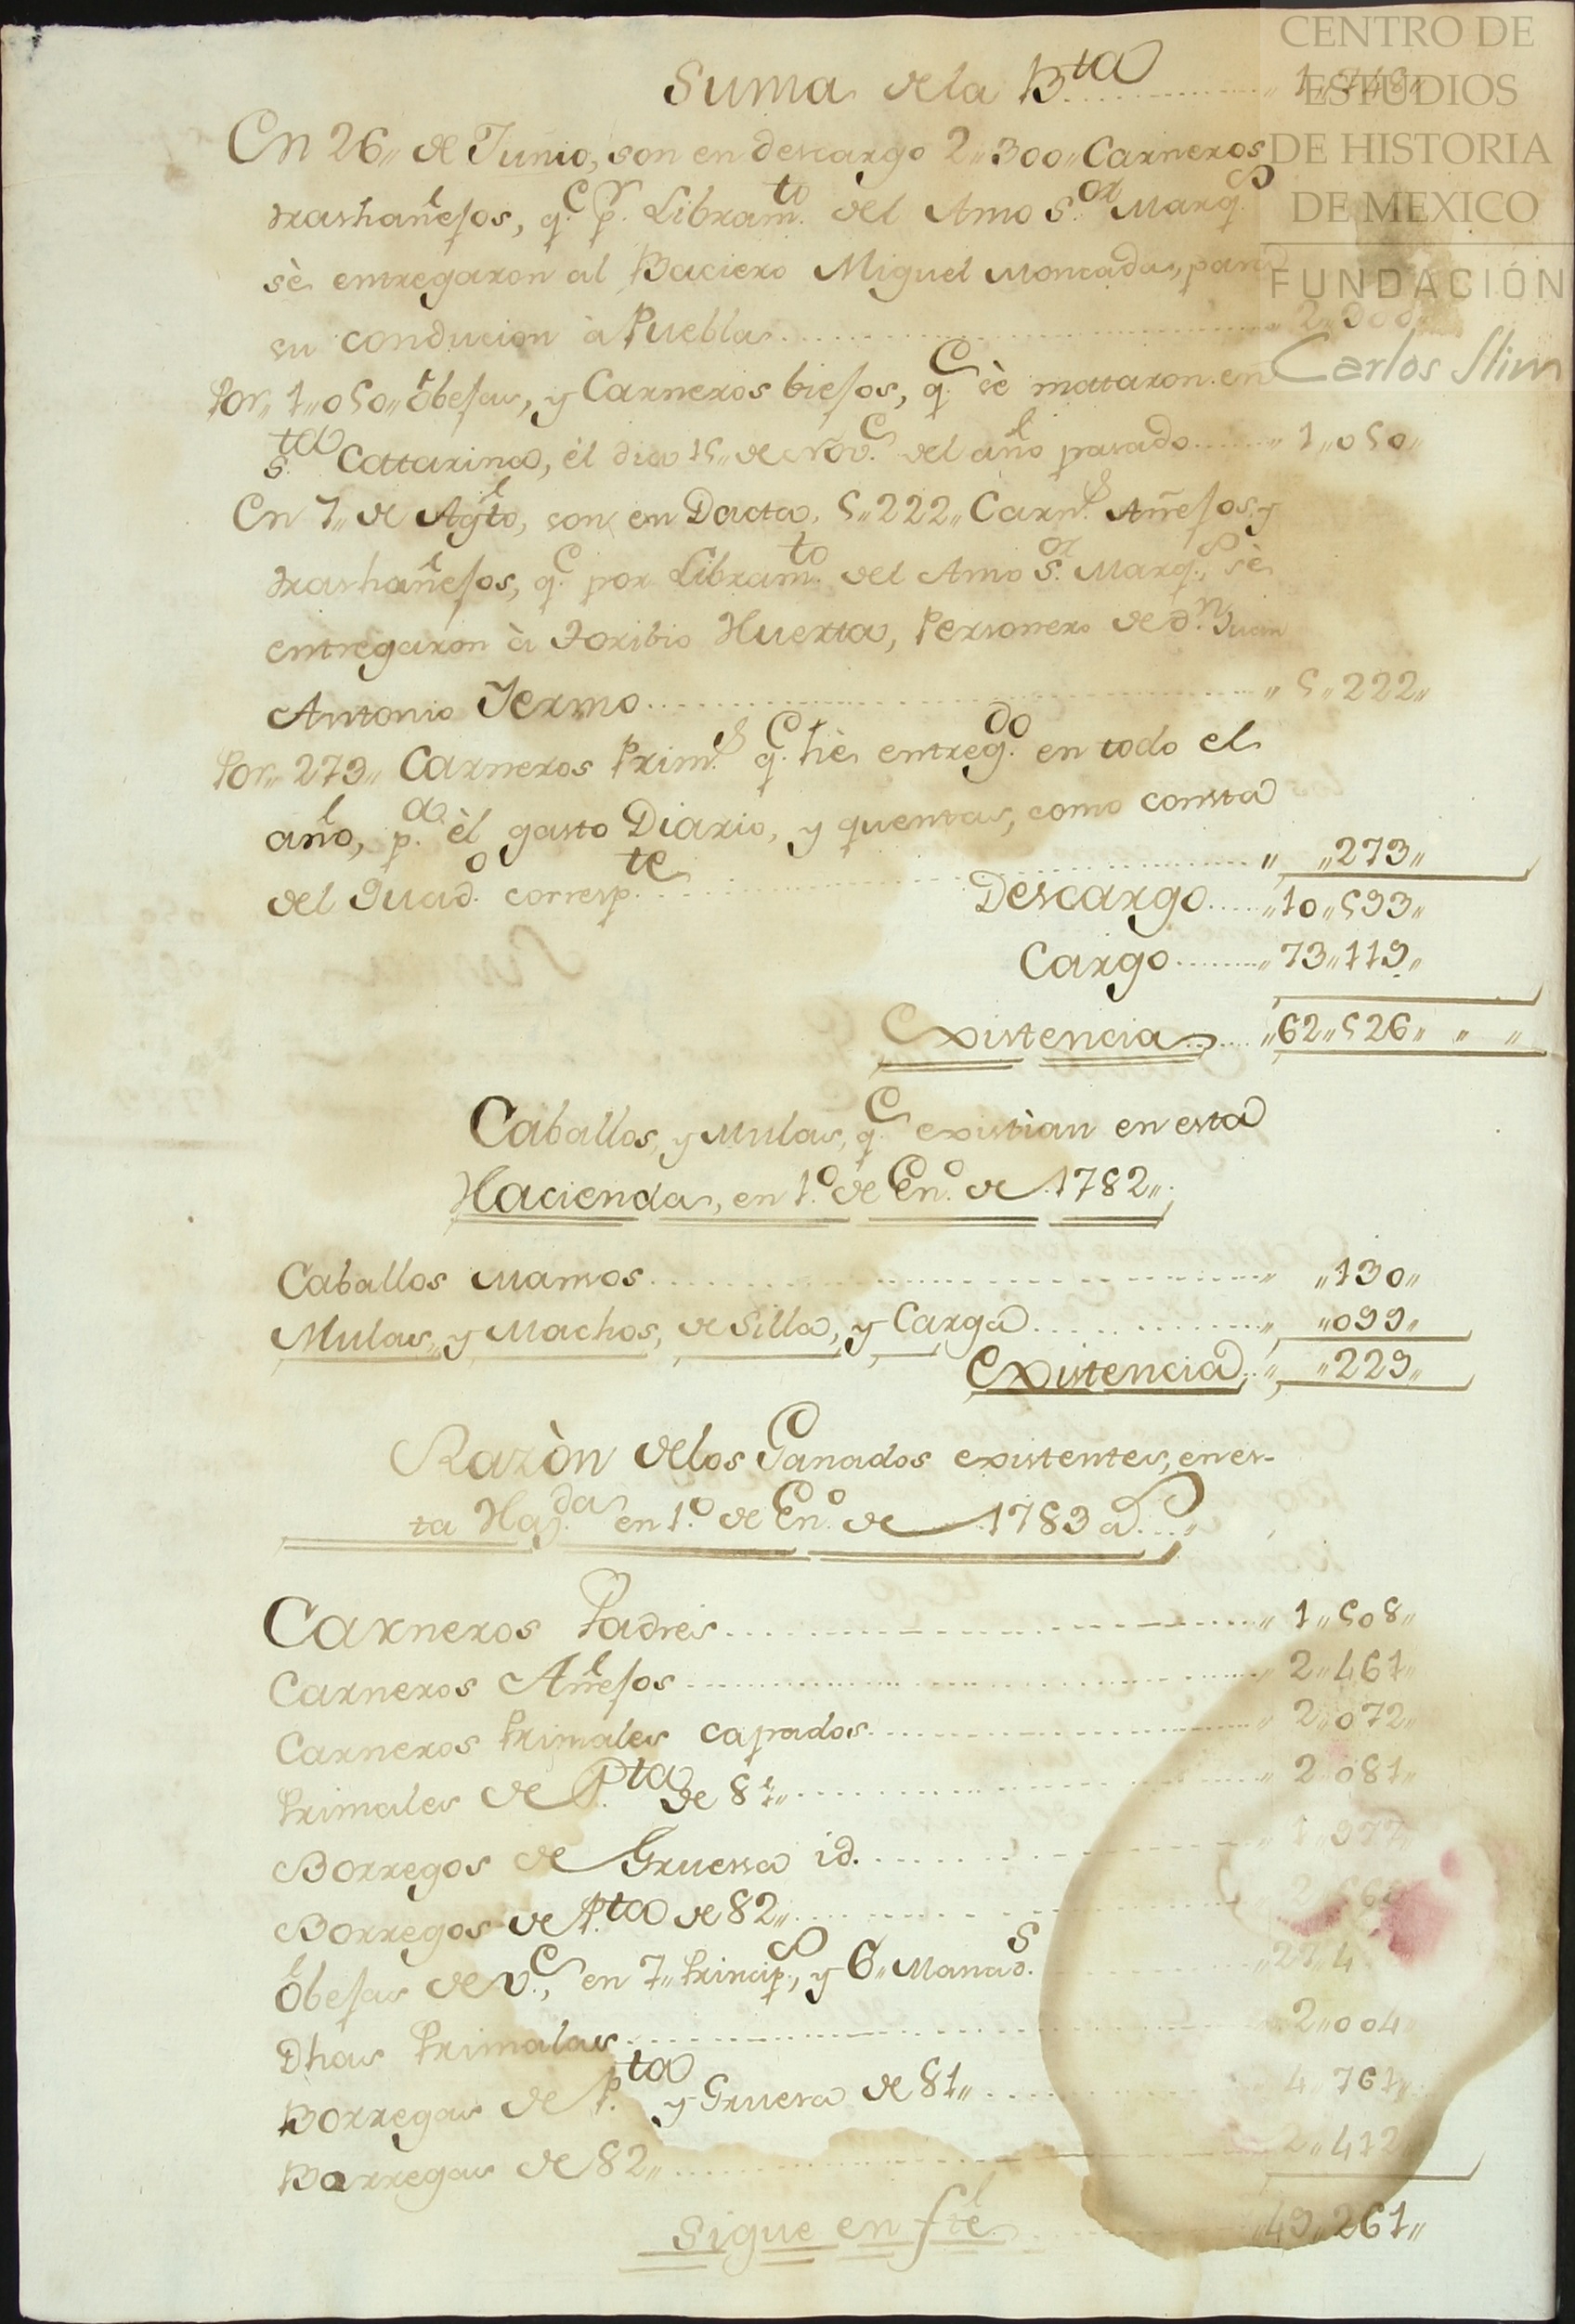 Suma dela B.ta ,, 1,,748,,
En 26,, de Junio, son en descargo 2,,300,, Carneros
trashañejos, q.e p.r Libram.to del Amo S.or Marq.s
sè entregaron al Baciero Miguel Moncada, para
su conducion à Puebla ,, 2,,300,,
Por,, 1,,050,, obejas, y Carneros biejos, q.e sè mataron en
S.ta Cattarina, èl dia 15,, de Nov.e del año pasado ,, 1,,050,,
En 7,, de Agto, son en Dacta, 5,,222,, Carn.s Añejos, y
trashañejos, q.e por Libram.to del Amo S.or Marq.s, sè
entregaron à Toribio Huerta, Personero de d.n Juan
Antonio Yermo ,, 5,,222,,
Por,, 273,, Carneros Prim.s q.e hè entreg.do en todo el
año, p.a èl gasto Diario, y quentas, como consta
del Quad.o corresp.te ,, ,,273,,
Descargo ,,10,,593,,
Cargo ,,73,,119,,
Existencia ,,62,,526,, ,, ,,
Caballos, y Mulas, q.e existìan en esta
Hacienda, en 1.o de En.o de 1782,,
Caballos Mansos ,, ,,130,,
Mulas, y Machos, de Silla, y Carga ,, ,,099,,
Existencia ,, ,,229,,
Razòn delos Ganados existentes, en es-
ta Ha.da en 1.o de En.o de 1783 a.s
Carneros Padres ,, 1,,508,,
Carneros Añejos ,, 2,,461,,
Carneros Primales capados ,, 2,,072,,
Primales de P.ta de 81,, ,, 2,,081,,
Borregos de Gruessa id. ,, 1,,977,,
Borregos de P.ta de 82,,
Obejas de V.e, en 7,, Princip.s, y 6,, Manad.s
Dhas Primalas ,, 2,,004,,
Borregas de P.ta y Gruesa de 81,, 4,,761,,
Borregas de 82,, 2,,412,,
Sigue en fte ,,49,,261,,
CENTRO DE
ESTUDIOS
DE HISTORIA
DE MEXICO
FUNDACIÓN
Carlos Slim